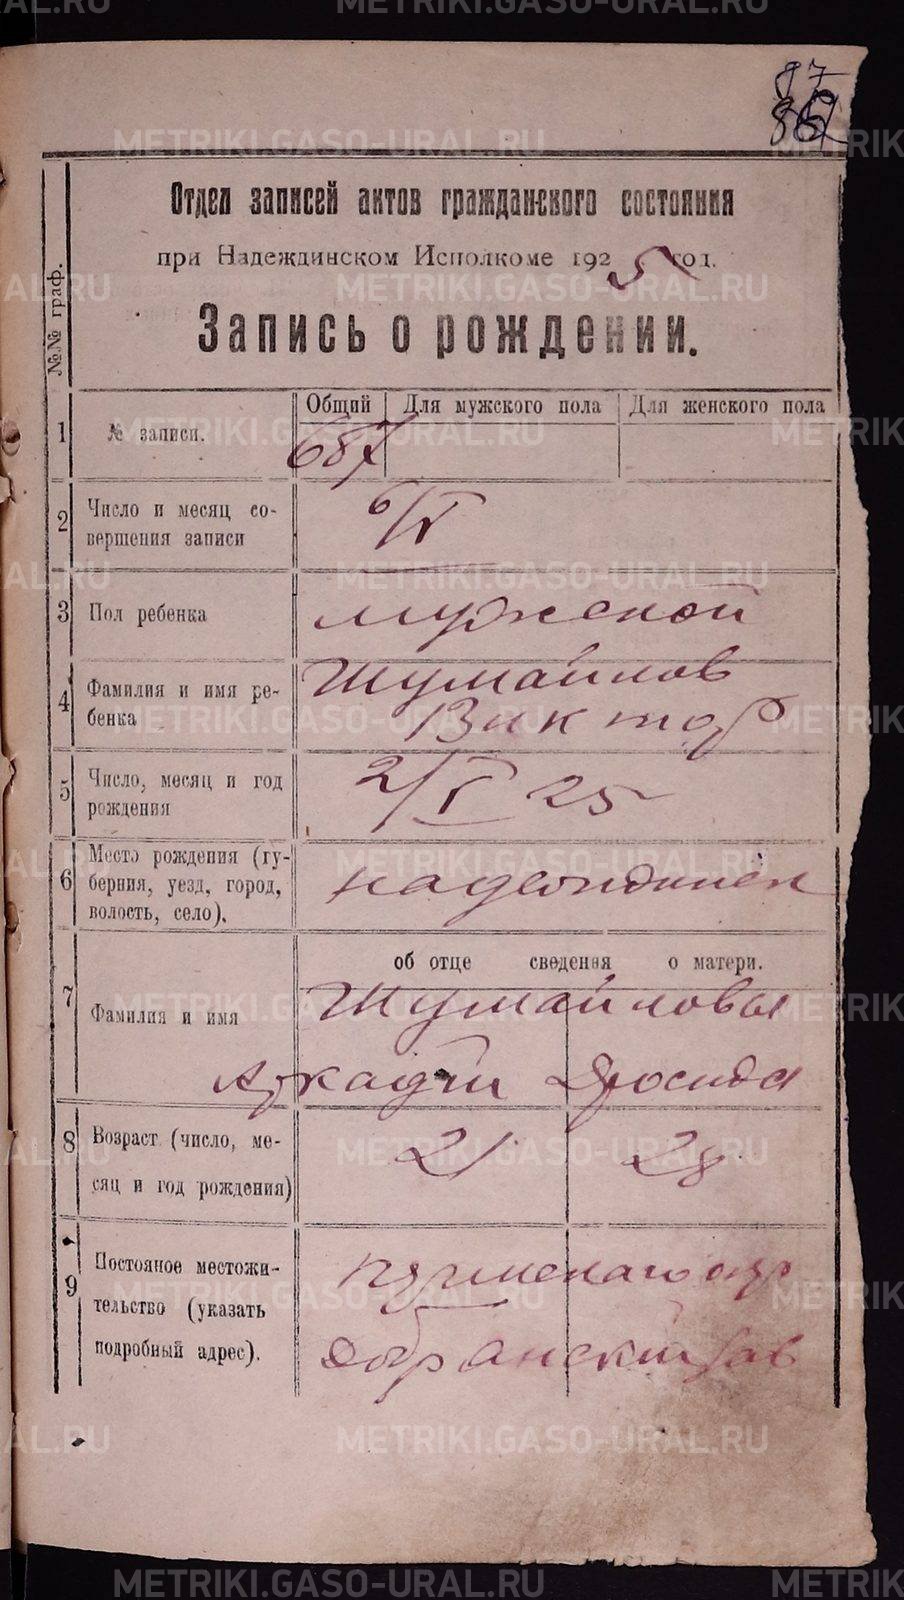 87
Отдел записей актов гражданского состояния
при Надеждинском Исполкоме 1925 год.
Запись о рождении.
№№ граф.
Общий Для мужского пола Для женского пола
1 № записи. 687
2 Число и месяц со-
вершения записи 6/V
3 Пол ребенка мужской
4 Фамилия и имя ре-
бенка Шумайлов
Виктор
5 Число, месяц и год
рождения 2/V 25
6 Место рождения (гу-
берния, уезд, город,
волость, село). надеждинск
об отце сведения о матери.
7 Фамилия и имя Шумайловы
Аркадий
8 Возраст (число, ме-
сяц и год рождения) 21 28
9 Постояное местожи-
тельство (указать
подробный адрес). пермскаго окр
зав
METRIKI.GASO-URAL.RU